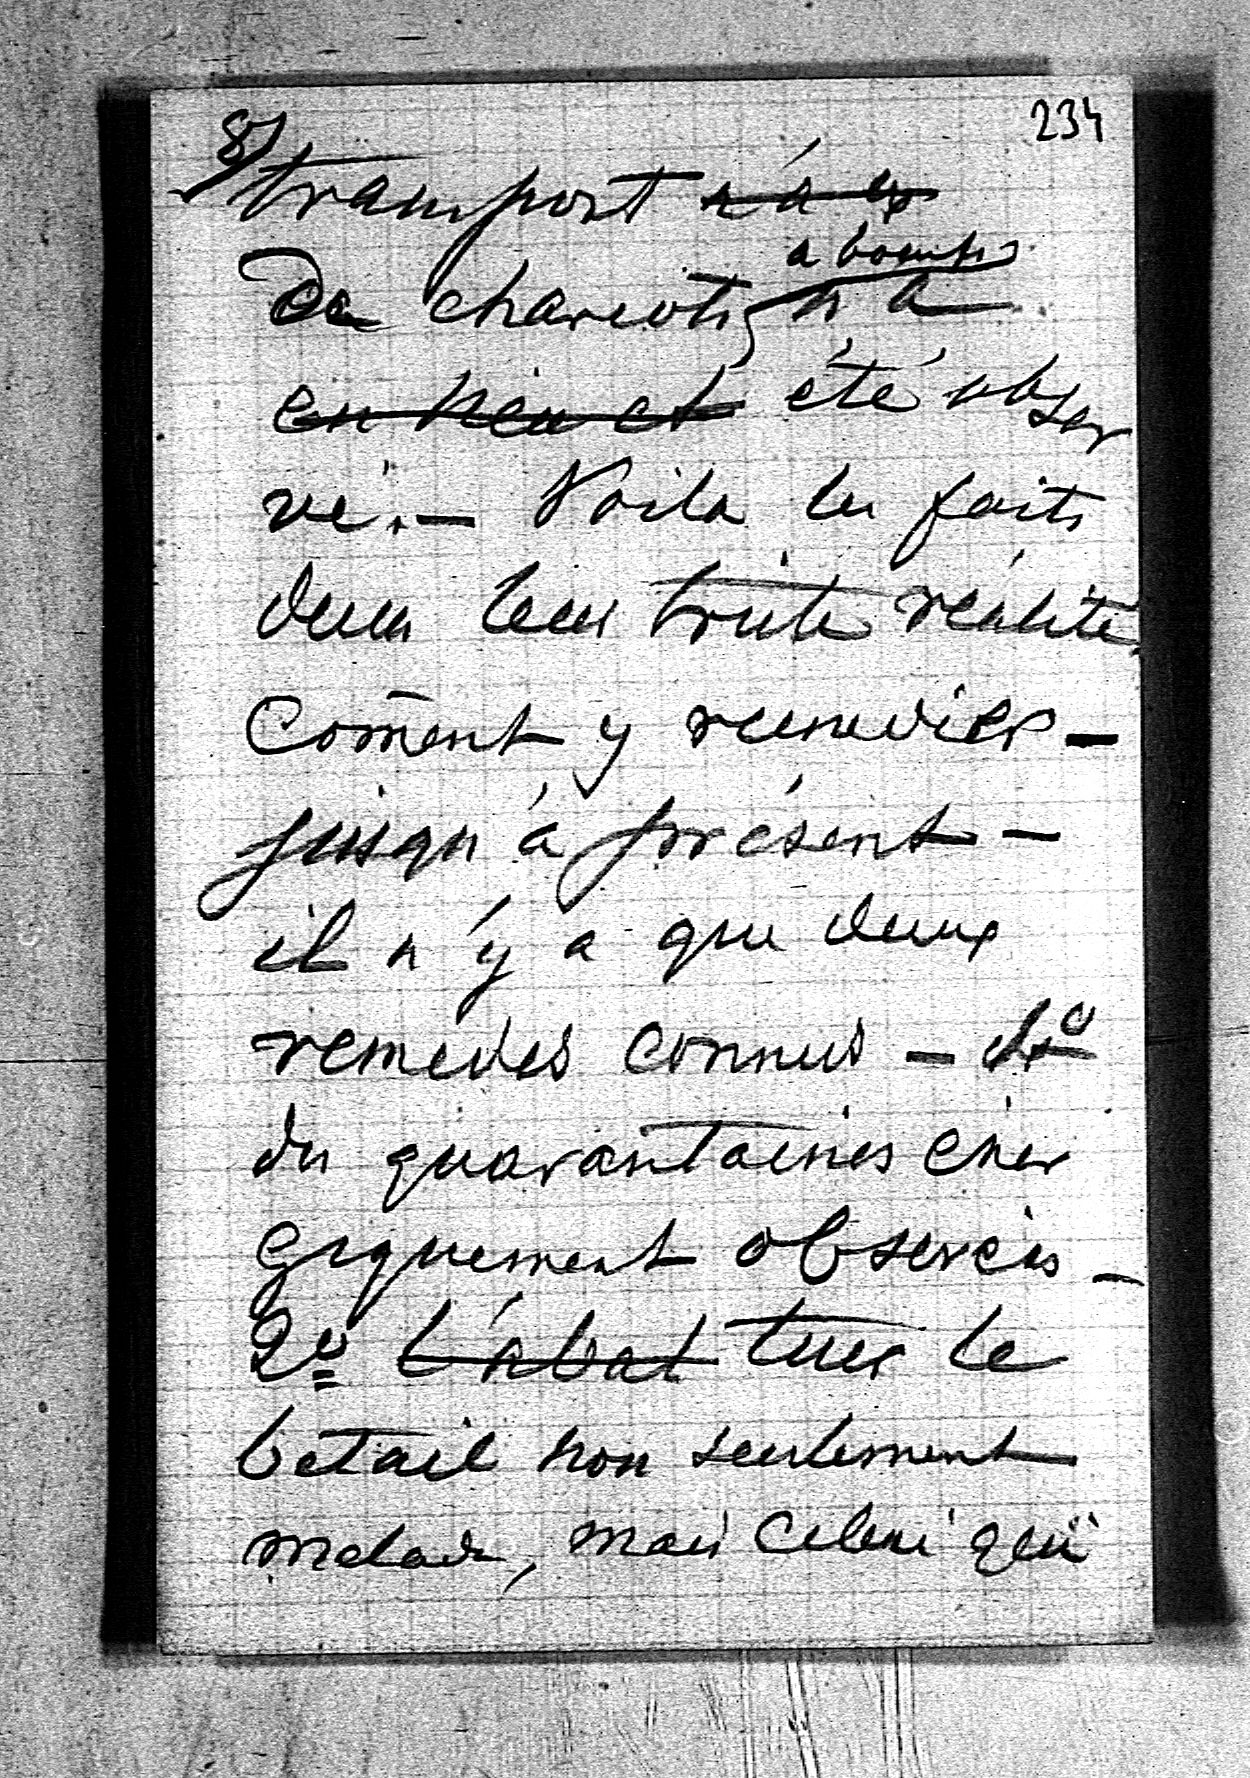 8/
234
transport n'a ex
de chariots a boeufs n'a
en lieu et été obser
vé. — Voila les faits
dans leur triste réalité.
Coment y remedier —
jusqu'à présent —
il n'y a que deux
remedes connus — 1º
des quarantaines éner
giquement observées —
2º l'abat tuer le
betail non seulement
malade, mais celui qui